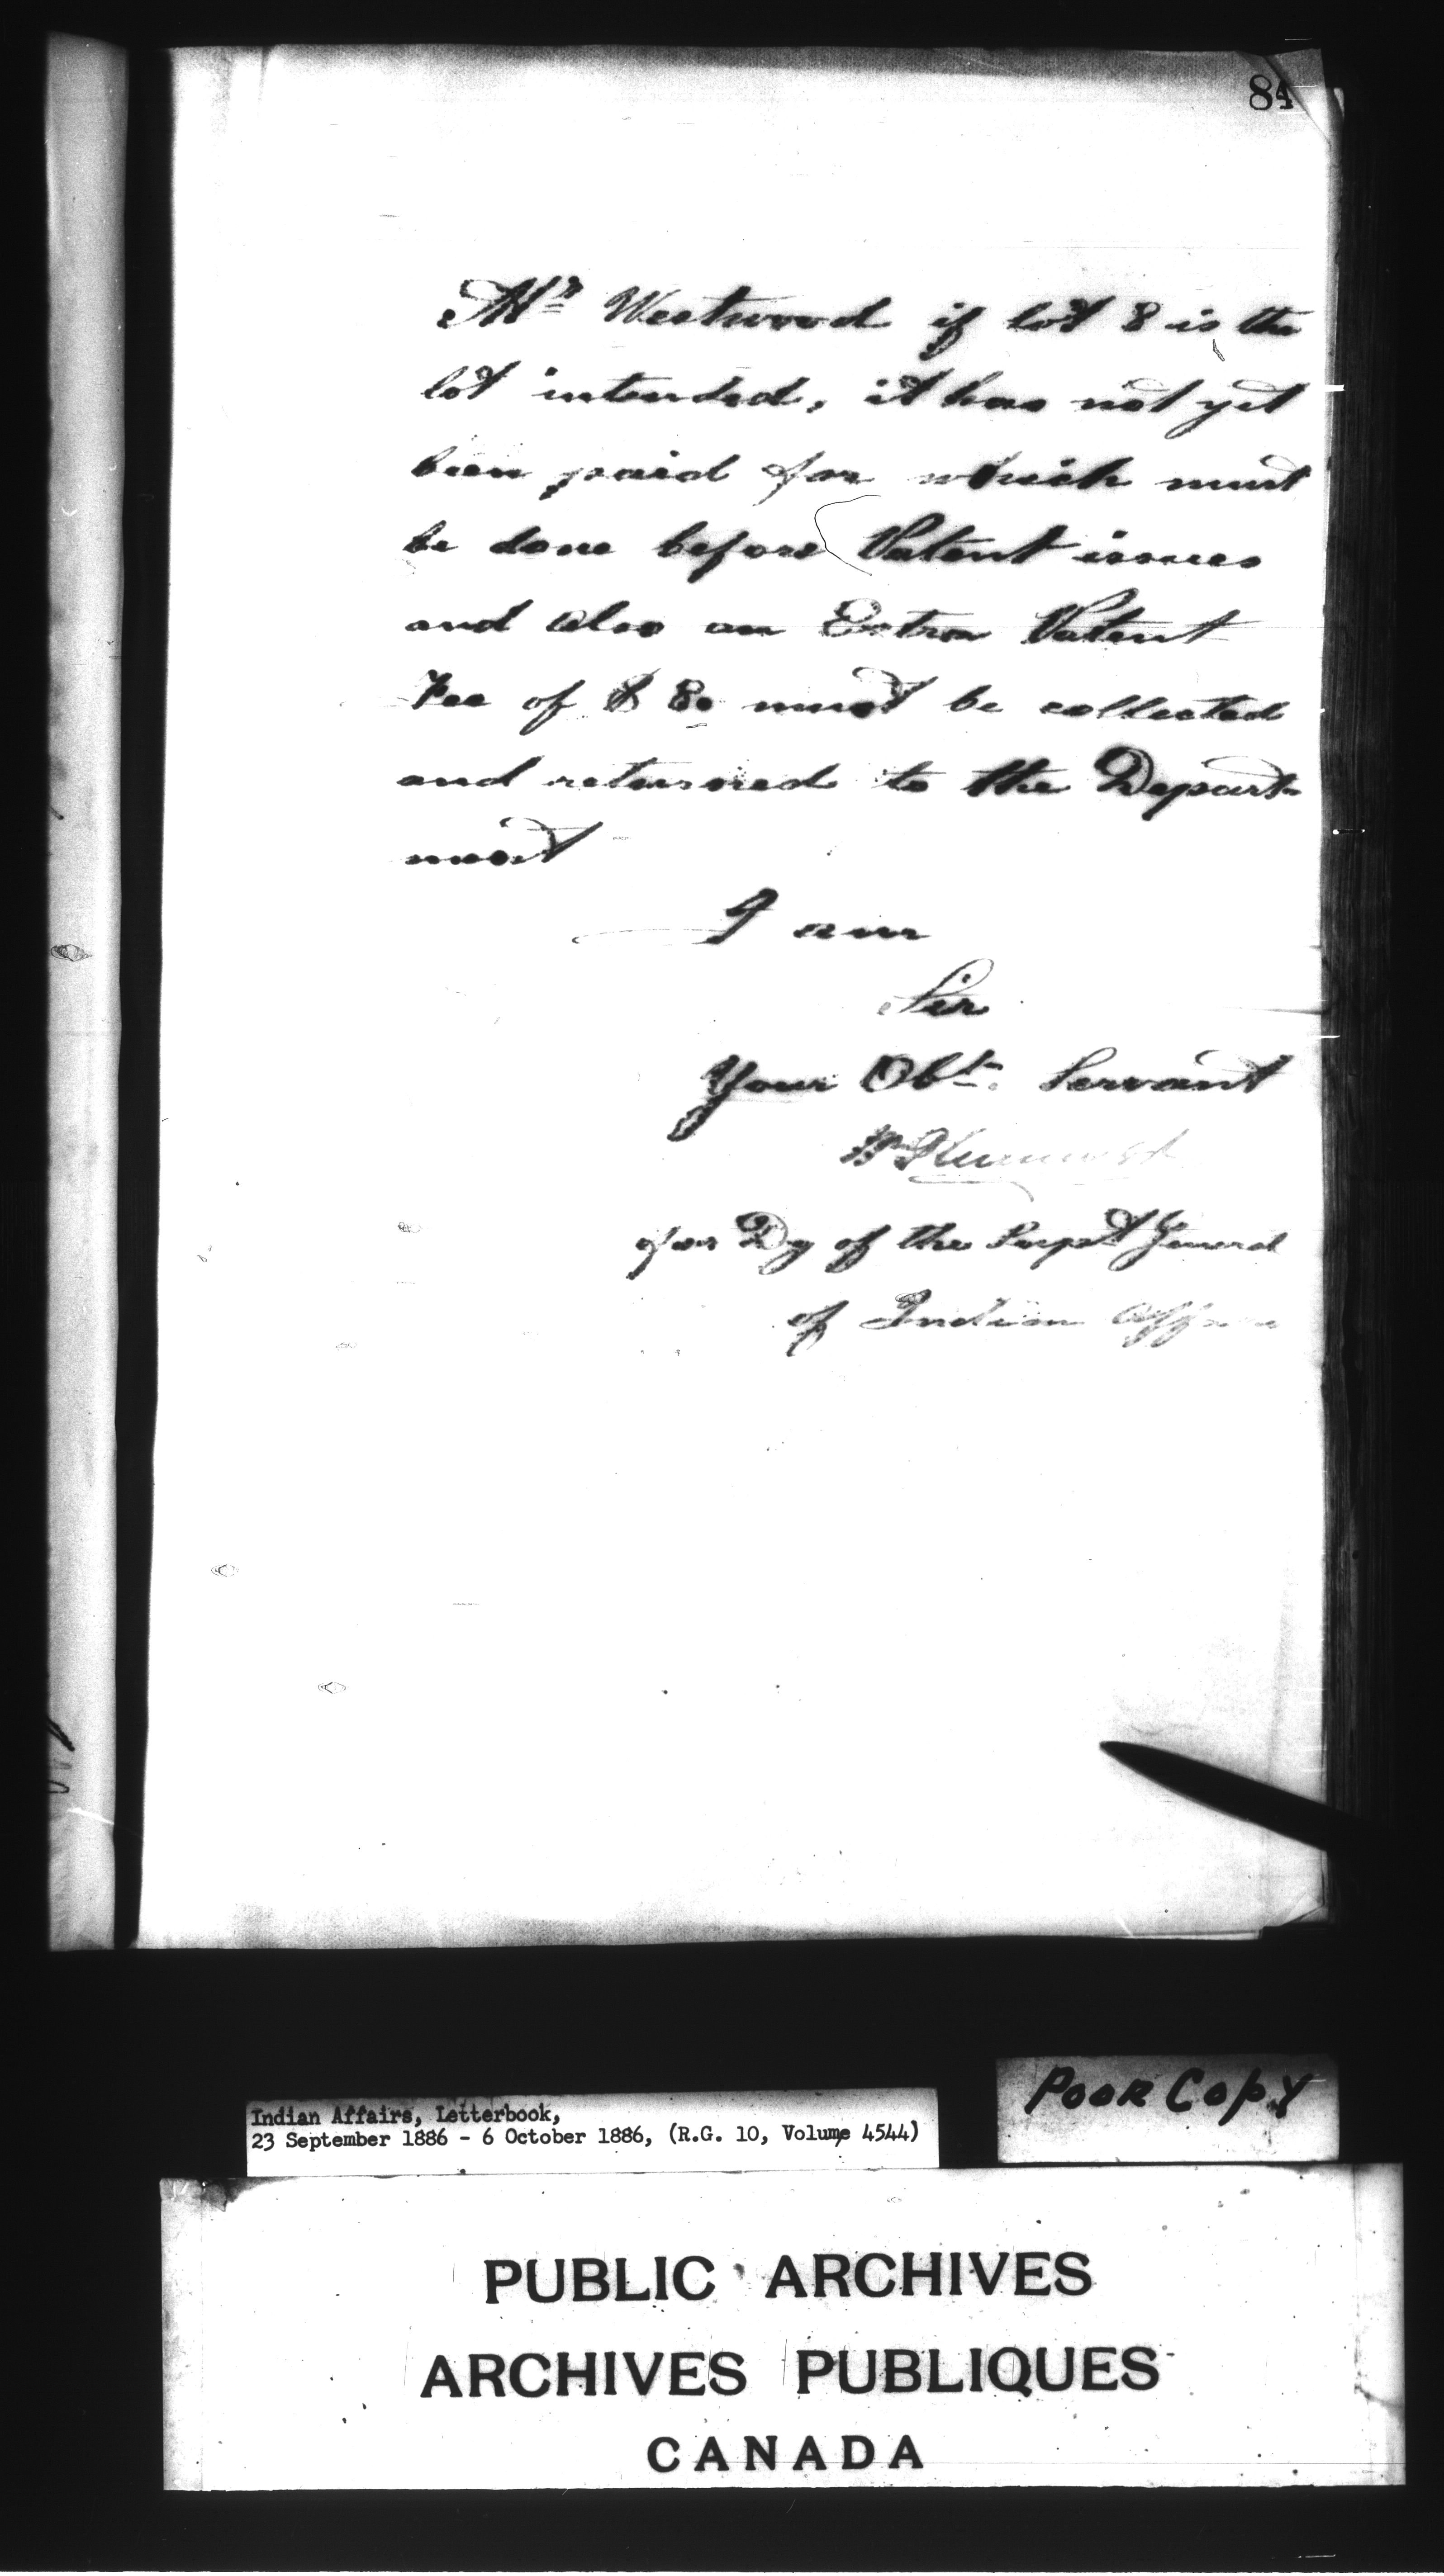 84
Mr Westwood if lot 8 is the
lot intended, it has not yet
been paid for which must
be done before Patent issues
and also an Extra Patent
Fee of $ 8. must be collected
and returned to the Depart-
ment
I am
Sir
Your Obt. Servant
for Dy of the Supt General
of Indian Affairs
POOR COPY
Indian Affairs, Letterbook,
23 September 1886 - 6 October 1886, (R.G. 10, Volume 4544)
PUBLIC ARCHIVES
ARCHIVES PUBLIQUES
CANADA